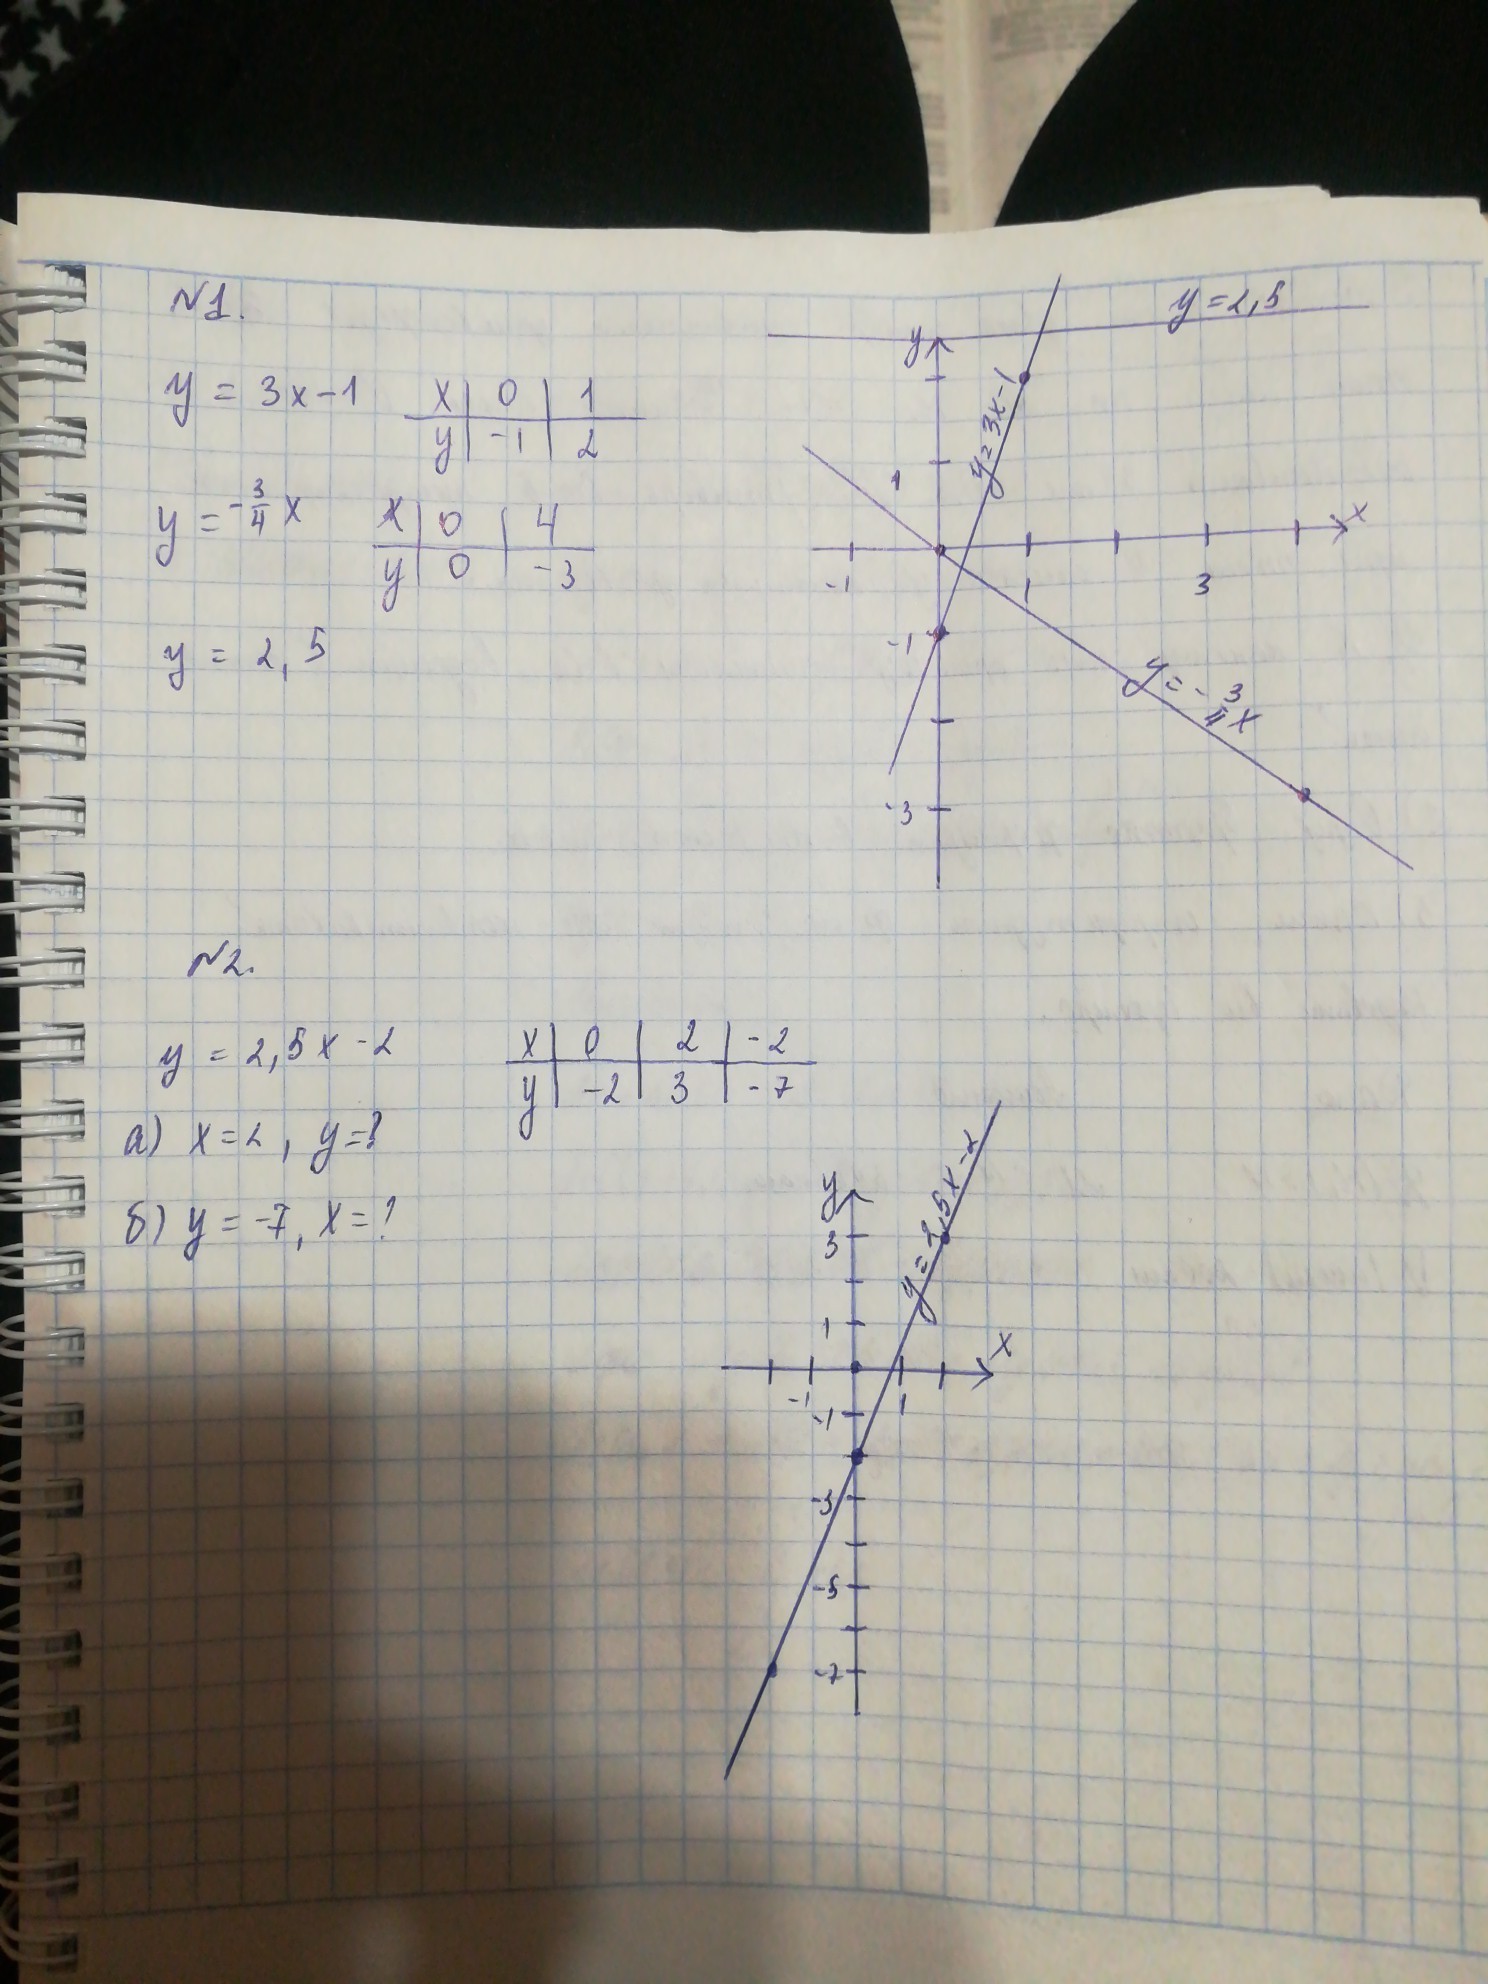 №1.
y = 3x-1
x 0 1
y -1 2
y = -3/4 x
x 0 4
y 0 -3
y = 2,5
y=2,5
y
y=3x-1
1
x
-1 1 3
-1
y=-3/4x
-3
№2.
y = 2,5x-2
x 0 2 -2
y -2 3 -7
а) x=2, y=?
б) y=-7, x=?
y
y=2,5x-2
3
1
x
-1 1
-1
-3
-5
-7